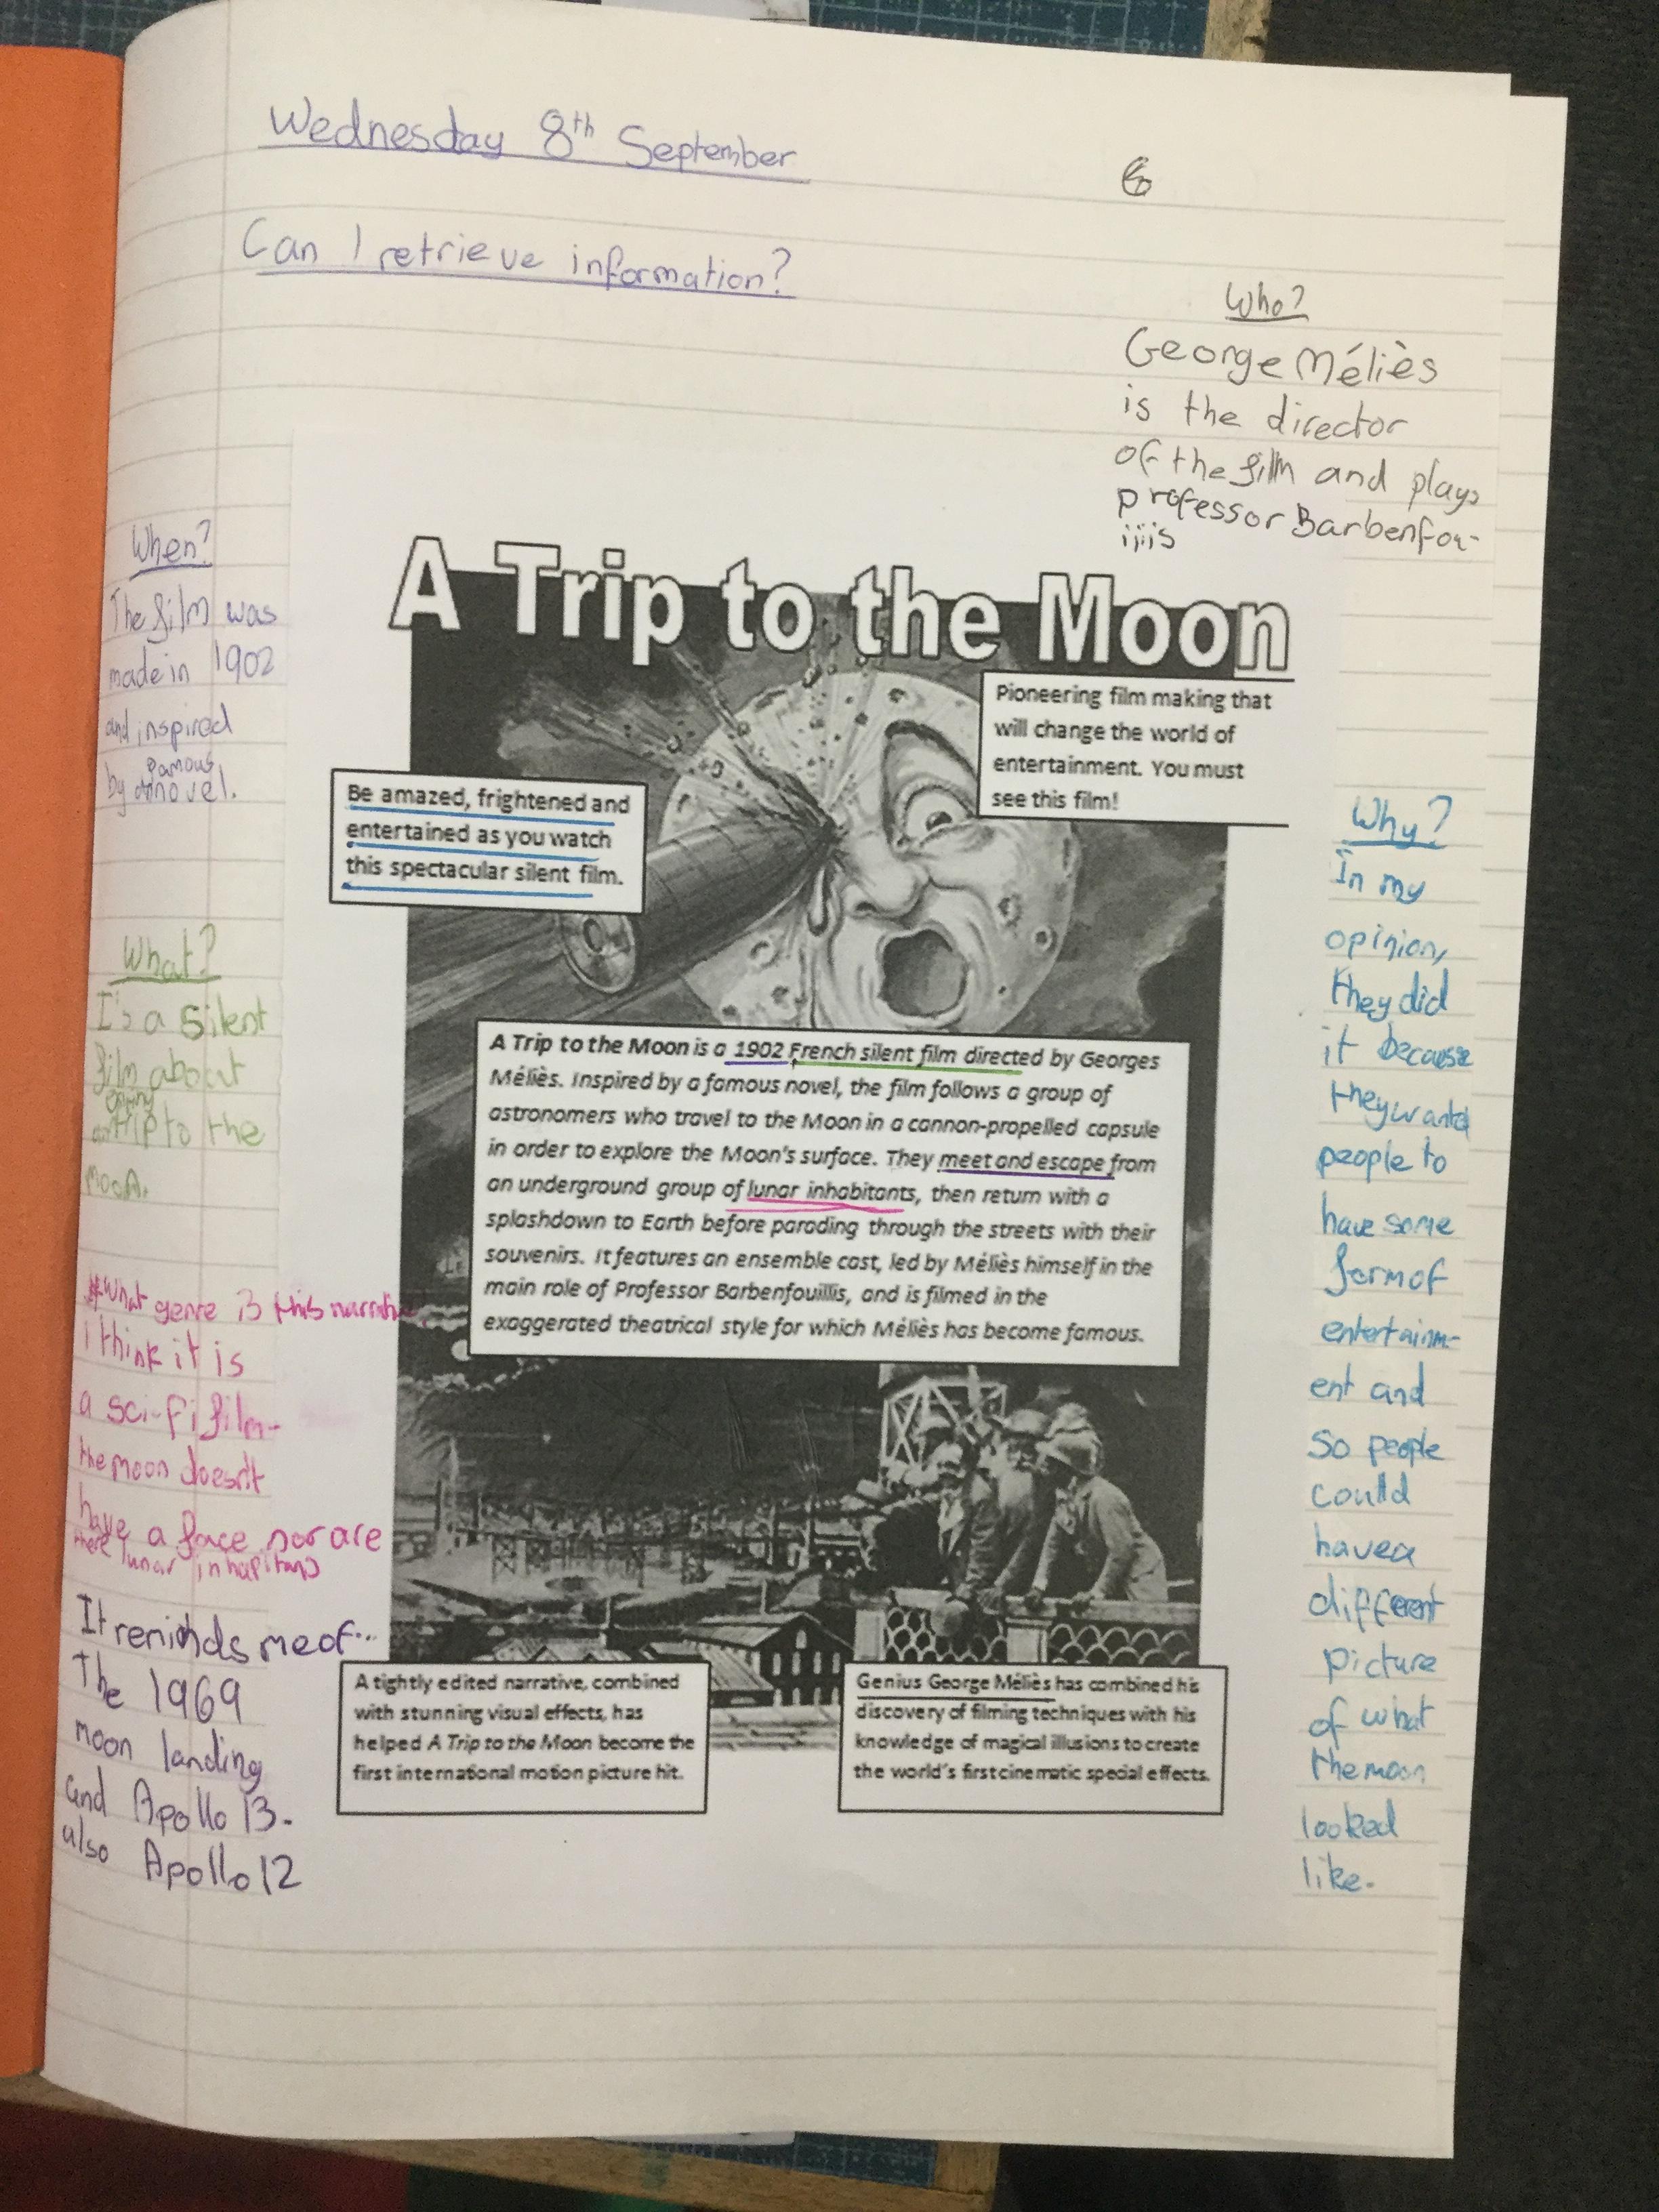 Wednesday 8th September
6
Can I retrieve information?
Who?
George Méliès
is the director
of the film and plays
professor Barbenfou-
iiis
When?
The film was
made in 1902
and inspired
by famous
novel.
What?
I's a silent
film about
going
trip to the
moon.
What genre is this narrative
i think it is
a sci-fi film-
the moon doesn't
have a face nor are
there lunar inhapitans
It reminds me of...
The 1969
moon landing
and Apollo 13.
also Apollo 12
A Trip to the Moon
Pioneering film making that
will change the world of
entertainment. You must
see this film!
Be amazed, frightened and
entertained as you watch
this spectacular silent film.
A Trip to the Moon is a 1902 French silent film directed by Georges
Méliès. Inspired by a famous novel, the film follows a group of
astronomers who travel to the Moon in a cannon-propelled capsule
in order to explore the Moon's surface. They meet and escape from
an underground group of lunar inhabitants, then return with a
splashdown to Earth before parading through the streets with their
souvenirs. It features an ensemble cast, led by Méliès himself in the
main role of Professor Barbenfouillis, and is filmed in the
exaggerated theatrical style for which Méliès has become famous.
A tightly edited narrative, combined
with stunning visual effects, has
helped A Trip to the Moon become the
first international motion picture hit.
Genius George Méliès has combined his
discovery of filming techniques with his
knowledge of magical illusions to create
the world's first cinematic special effects.
Why?
In my
opinion,
they did
it because
they wanted
people to
have some
form of
entertainm-
ent and
so people
could
have a
different
picture
of what
the moon
looked
like.